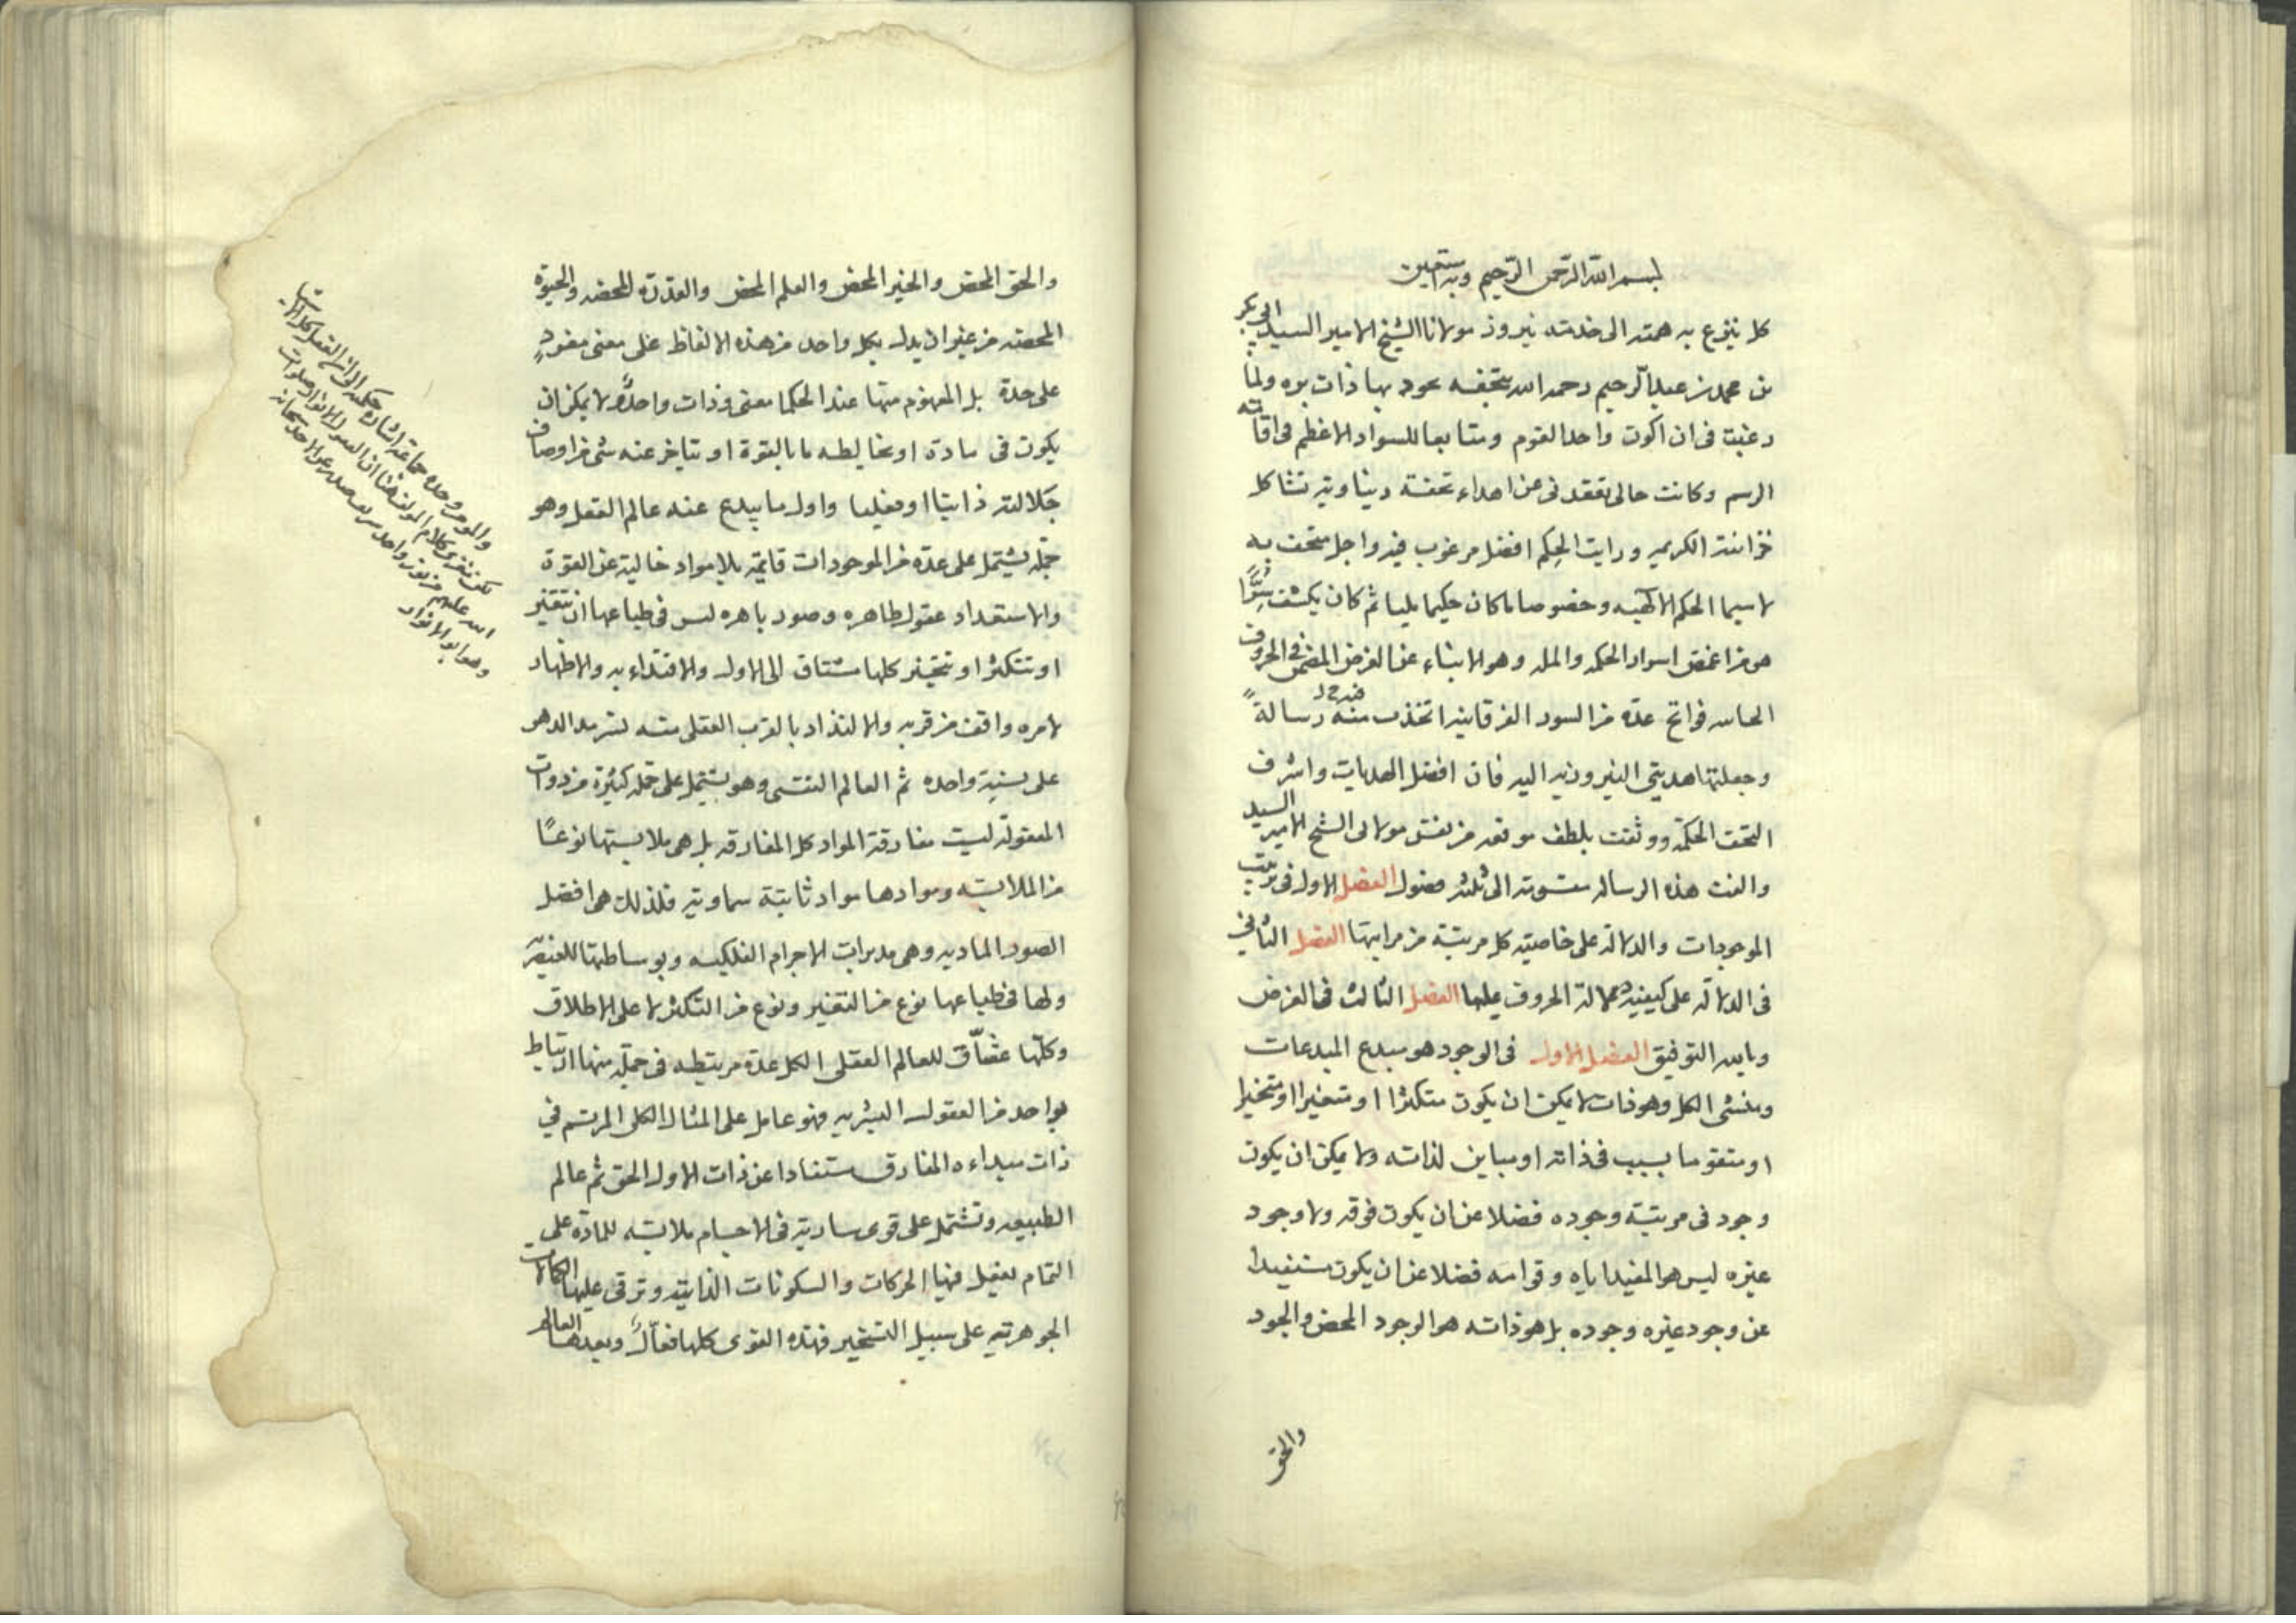 بسم الله الرحمن الرحيم وبه نستعين
كل ينزع به همته الى خدمته نيروز مولانا الشيخ الامير السيد ابى بكر
بن محمد بن عبد الرحيم رحمه الله بتحفه يجود بها ذات يده ولما
رغبت فى ان اكون واحد القوم ومتابعا للسواد الاعظم فى اقامته
الرسم وكانت حالى تقعد نى عن اهداء تحفة دنياوية تشاكل
خزانته الكريمه ورايت الحكم افضل مرغوب فيه واجل متحف به
لاسيما الحكم الالهيه وخصوصا ما كان حكيما مليا ثم كان يكشف سرًّا
هو من اغمض اسرار الحكمه والمله وهو الانباء عن الغرض المضمن فى الحروف
فواتح عدة من السور الفرقانيه اتخذت منه رسالةً
وجعلتها هديتى النيروزيه اليه فان افضل الهدايات واشرف
التحف الحكمة ووثقت بلطف موقعه من نفس مولاى الشيخ الامير السيد
والفت هذه الرساله مقسومة الى ثلثه فصول الفصل الاول فى ترتيب
الموجودات والدلالة على خاصية كل مرتبة من مراتبها الفصل الثانى
فى الدلالة على كيفيه دلالة الحروف عليها الفصل الثالث فى الغرض
وبالله التوفيق الفصل الاول فى الوجود هو مبدع المبدعات
ومنشى الكل وهو ذات لا يمكن ان يكون متكثرا او متغيرا او متحيزا
او متقوما بسبب فى ذاته او مباين لذاته ولا يمكن ان يكون
وجود فى مرتبة وجوده فضلا عن ان يكون فوقه ولا وجود
غيره ليس هو المفيد اياه وقوامه فضلا عن ان يكون مستفيدا
عن وجود غيره وجوده بل هو ذاته هو الوجود المحض والجود
والحق
والحق المحض والخير المحض والعلم المحض والقدرة المحضه والحيوة
المحضه من غير ان يدل بكل واحد من هذه الالفاظ على معنى مفردٍ
على حدة بل المفهوم منها عند الحكما معنى وذات واحدةٌ لا يمكن ان
يكون فى مادة او يخالطه ما بالقوة او يتاخر عنه شى من اوصاف
جلالته ذاتيا او فعليا واول ما يبدع عنه عالم العقل وهو
جمله يشتمل على عدة من الموجودات قايمة بلا مواد خالية عن القوة
والاستعداد عقول طاهره وصور باهره ليس فى طباعها ان تتغير
او تتكثر او تتحيز كلها مشتاق الى الاول والاقتداء به والاظهار
لامره واقف من قربه والالتذاذ بالقرب العقلى منه سرمد الدهر
على نسبة واحده ثم العالم النفسى وهو يشتمل على جمله كثيرة من ذوات
المعقولة ليست مفارقة المواد كل المفارقه بل هى ملابستها نوعًا
من الملابسه وموادها مواد ثابتة سماوية فلذلك هى افضل
الصور الماديه وهى مدبرات الاجرام الفلكيه وبوساطتها للعنصرية
ولها فى طباعها نوع من التغير ونوع من التكثر لا على الاطلاق
وكلها عشّاق للعالم العقلى الكل عدة مرتبطه فى جملة منها ارتباط
بواحد من العقول فهو عامل على المثال الكلى المرتسم فى
ذات مبداءه المفارق مستفادا عن ذات الاول الحق ثم عالم
الطبيعه وتشتمل على قوى سارية فى الاجسام ملابسه للمادة على
التمام تفعل فيها الحركات والسكونات الذاتية وترقى عليها الكمالات
الجوهرية على سبيل التسخير فهذه القوى كلها فعّالٌ وبعدها العالم